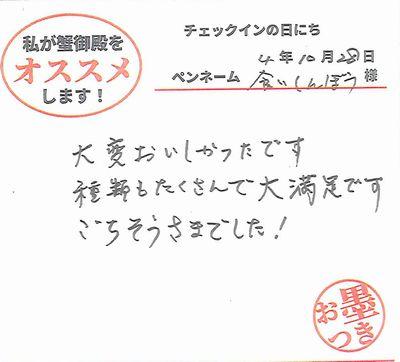 私が蟹御殿を
オススメ
します！
チェックインの日にち
4年10月28日
ペンネーム 食いしんぼう 様
大変おいしかったです
種類もたくさんで大満足です
ごちそうさまでした！
お墨つき